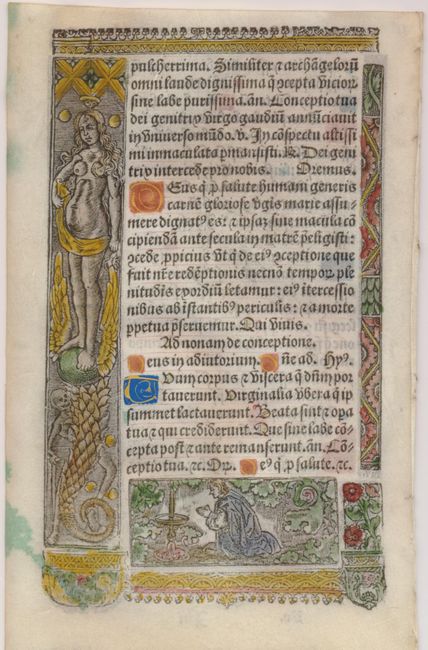 pulcherrima. Similiter ⁊ archãgelorũ
omni laude dignissima q̃ ꝯcepta vicior̃
sine labe purissima. añ. Conceptio tua
dei genitrix virgo gaudiũ annũciauit
in vniuerso mũdo. v. In cõspectu altissi
mi immaculata ꝑmansisti. R. Dei geni
trix intercede pro nobis. Oremus.
Deus q̃ ꝓ salute humani generis
carnẽ gloriose v̾gis marie assu-
mere dignatꝰ es: ⁊ ipsaz sine macula cõ
cipiendã ante secula in matrẽ p̃eligisti:
ꝯcede ꝓpicius vt q̃ de eiꝰ ꝯceptione que
fuit nr̃e redẽptionis necnõ tempoꝝ ple
nitudĩs exordiũ letamur: eiꝰ itercessio
nibus ab ĩstantibꝰ periculis: ⁊ a morte
ꝑpetua p̃seruemur. Qui viuis.
Ad nonam de conceptione.
Deus in adiutorium. Dñe ad. Hyꝰ.
Cuum corpus ⁊ viscera q̃ dñm por
tauerunt. Virginalia vbera q̃ ip
sum met lactauerunt. Beata sint ⁊ opa
tua ⁊ qui crediderunt. Que sine labe cõ-
cepta post ⁊ ante remanserunt. añ. Cõ-
ceptio tua. ⁊c. Or̃o. Deꝰ q̃ ꝓ salute. ⁊c.